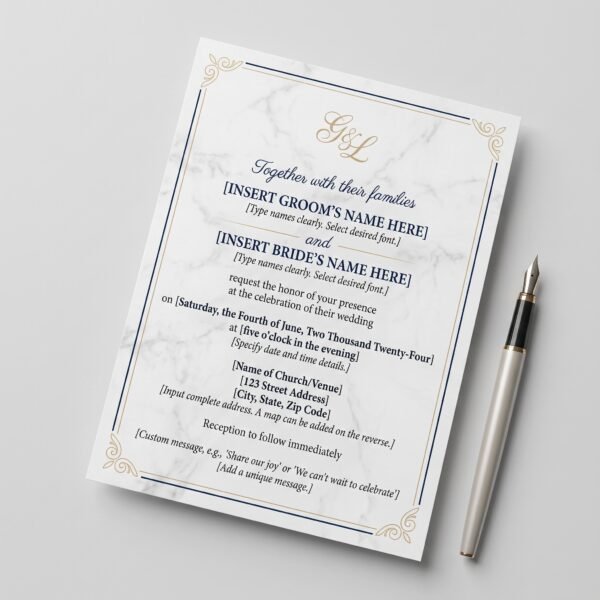 G&L
Together with their families
[INSERT GROOM'S NAME HERE]
[Type names clearly. Select desired font.]
and
[INSERT BRIDE'S NAME HERE]
[Type names clearly. Select desired font.]
request the honor of your presence
at the celebration of their wedding
on [Saturday, the Fourth of June, Two Thousand Twenty-Four]
at [five o'clock in the evening]
[Specify date and time details.]
[Name of Church/Venue]
[123 Street Address]
[City, State, Zip Code]
[Input complete address. A map can be added on the reverse.]
Reception to follow immediately
[Custom message, e.g., 'Share our joy' or 'We can't wait to celebrate']
[Add a unique message.]